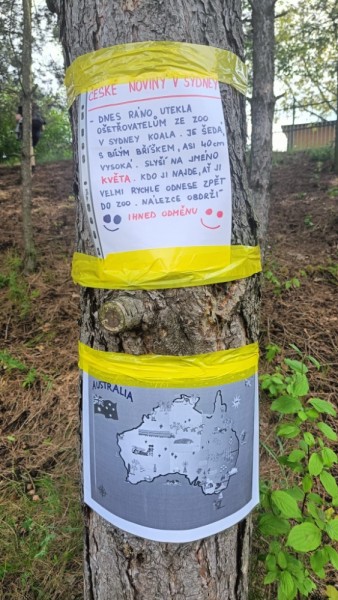 ČESKÉ NOVINY V SYDNEY
- DNES RÁNO, UTEKLA
OŠETŘOVATELŮM ZE ZOO
V SYDNEY KOALA. JE ŠEDÁ
S BÍLÝM BŘÍŠKEM, ASI 40cm
VYSOKÁ. SLYŠÍ NA JMÉNO
KVĚTA. KDO JI NAJDE, AŤ JI
VELMI RYCHLE ODNESE ZPĚT
DO ZOO. NÁLEZCE OBDRŽÍ
IHNED ODMĚNU
AUSTRALIA